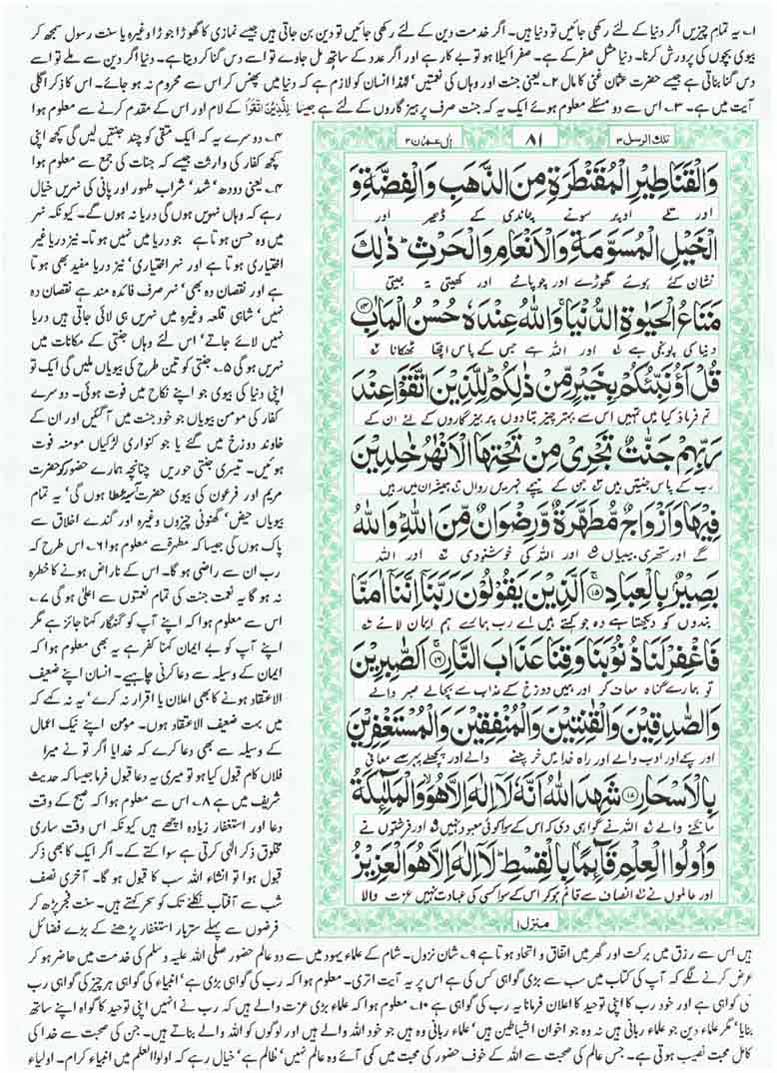 ۱۔ یہ تمام چیزیں اگر دنیا کے لئے رکھی جائیں تو دنیا ہیں۔ اگر خدمت دین کے لئے رکھی جائیں تو دین بن جاتی ہیں جیسے نمازی کا گھوڑا جوڑا وغیرہ یا سنت رسول سمجھ کر
بیوی بچوں کی پرورش کرنا۔ دنیا مثل صفر کے ہے۔ صفر اکیلا ہو تو بے کار ہے اور اگر عدد کے ساتھ مل جاوے تو اسے دس گنا کر دیتا ہے۔ دنیا اگر دین سے ملے تو اسے
دس گنا بناتی ہے جیسے حضرت عثمان غنی کا مال ۲۔ یعنی جنت اور وہاں کی نعمتیں' لہذا انسان کو لازم ہے کہ دنیا میں پھنس کر اس سے محروم نہ ہو جائے۔ اس کا ذکر اگلی
آیت میں ہے۔ ۳۔ اس سے دو مسئلے معلوم ہوئے ایک یہ کہ جنت صرف پرہیزگاروں کے لئے ہے جیسا لِلَّذِیْنَ اتَّقَوْا کے لام اور اس کے مقدم کرنے سے معلوم ہوا
تلك الرسل ۳
۸۱
اٰل عمرٰن ۳
وَالْقَنَاطِیْرِ الْمُقَنْطَرَةِ مِنَ الذَّهَبِ وَالْفِضَّةِ وَ
اور تلے اوپر سونے چاندی کے ڈھیر اور
الْخَیْلِ الْمُسَوَّمَةِ وَالْاَنْعَامِ وَالْحَرْثِ ؕ ذٰلِكَ
نشان کئے ہوئے گھوڑے اور چوپائے اور کھیتی یہ جیتی
مَتَاعُ الْحَیٰوةِ الدُّنْیَا ۚ وَاللّٰهُ عِنْدَهٗ حُسْنُ الْمَاٰبِ ﴿۱۴﴾
دنیا کی پونجی ہے اور اللہ ہے جس کے پاس اچھا ٹھکانا
قُلْ اَؤُنَبِّئُكُمْ بِخَیْرٍ مِّنْ ذٰلِكُمْ ؕ لِلَّذِیْنَ اتَّقَوْا عِنْدَ
تم فرماؤ کیا میں تمہیں اس سے بہتر چیز بتا دوں پرہیزگاروں کے لئے ان کے
رَبِّهِمْ جَنّٰتٌ تَجْرِیْ مِنْ تَحْتِهَا الْاَنْهٰرُ خٰلِدِیْنَ
رب کے پاس جنتیں ہیں جن کے نیچے نہریں رواں ہمیشہ ان میں رہیں
فِیْهَا وَاَزْوَاجٌ مُّطَهَّرَةٌ وَّرِضْوَانٌ مِّنَ اللّٰهِ ؕ وَاللّٰهُ
گے اور ستھری بیبیاں اور اللہ کی خوشنودی اور اللہ
بَصِیْرٌۢ بِالْعِبَادِ ﴿۱۵﴾ اَلَّذِیْنَ یَقُوْلُوْنَ رَبَّنَاۤ اِنَّنَاۤ اٰمَنَّا
بندوں کو دیکھتا ہے وہ جو کہتے ہیں اے رب ہمارے ہم ایمان لائے
فَاغْفِرْ لَنَا ذُنُوْبَنَا وَقِنَا عَذَابَ النَّارِ ﴿۱۶﴾ اَلصّٰبِرِیْنَ
تو ہمارے گناہ معاف کر اور ہمیں دوزخ کے عذاب سے بچالے صبر والے
وَالصّٰدِقِیْنَ وَالْقٰنِتِیْنَ وَالْمُنْفِقِیْنَ وَالْمُسْتَغْفِرِیْنَ
اور سچے اور ادب والے اور راہ خدا میں خرچنے والے اور پچھلے پہر سے معافی
بِالْاَسْحَارِ ﴿۱۷﴾ شَهِدَ اللّٰهُ اَنَّهٗ لَاۤ اِلٰهَ اِلَّا هُوَ ۙ وَالْمَلٰٓئِكَةُ
مانگنے والے اللہ نے گواہی دی کہ اس کے سوا کوئی معبود نہیں اور فرشتوں نے
وَاُولُوا الْعِلْمِ قَآئِمًۢا بِالْقِسْطِ ؕ لَاۤ اِلٰهَ اِلَّا هُوَ الْعَزِیْزُ
اور عالموں نے انصاف سے قائم ہو کر اس کے سوا کسی کی عبادت نہیں عزت والا
منزل ۱
۴۔ دوسرے یہ کہ ایک متقی کو چند جنتیں ملیں گی کچھ اپنی
کچھ کفار کی وارثت جیسے کہ جنات کی جمع سے معلوم ہوا
۴۔ یعنی دودھ' شہد' شراب طہور اور پانی کی نہریں خیال
رہے کہ وہاں نہریں ہوں گی دریا نہ ہوں گے۔ کیونکہ نہر
میں وہ حسن ہوتا ہے جو دریا میں نہیں ہوتا۔ نیز دریا غیر
اختیاری ہوتا ہے اور نہر اختیاری' نیز دریا مفید بھی ہوتا
ہے اور نقصان دہ بھی' نہر صرف فائدہ مند ہے نقصان دہ
نہیں' شاہی قلعہ وغیرہ میں نہریں ہی لائی جاتی ہیں دریا
نہیں لائے جاتے' اس لئے وہاں جنتی کے مکانات میں
نہریں ہوں گی ۵۔ جنتی کو تین طرح کی بیویاں ملیں گی ایک تو
اپنی دنیا کی بیوی جو اپنے نکاح میں فوت ہوئی۔ دوسرے
کفار کی مومن بیویاں جو خود جنت میں آگئیں اور ان کے
خاوند دوزخ میں گئے یا جو کنواری لڑکیاں مومنہ فوت
ہوئیں۔ تیسری جنتی حوریں چنانچہ ہمارے حضور کو حضرت
مریم اور فرعون کی بیوی حضرت آسیہ عطا ہوں گی' یہ تمام
بیویاں حیض' گھنونی چیزوں وغیرہ اور گندے اخلاق سے
پاک ہوں گی جیسا کہ مطہرۃ سے معلوم ہوا ۶۔ اس طرح کہ
رب ان سے راضی ہو گا۔ اس کے ناراض ہونے کا خطرہ
نہ ہو گا یہ نعمت جنت کی تمام نعمتوں سے اعلیٰ ہو گی ۷۔
اس سے معلوم ہوا کہ اپنے آپ کو گنہگار کہنا جائز ہے مگر
اپنے آپ کو بے ایمان کہنا کفر ہے یہ بھی معلوم ہوا کہ
ایمان کے وسیلہ سے دعا کرنی چاہیے۔ انسان اپنے ضعیف
الاعتقاد ہونے کا بھی اعلان یا اقرار نہ کرے' یہ نہ کہے کہ
میں بہت ضعیف الاعتقاد ہوں۔ مومن اپنے نیک اعمال
کے وسیلہ سے بھی دعا کرے کہ خدایا اگر تو نے میرا
فلاں کام قبول کیا ہو تو میری یہ دعا قبول فرما جیسا کہ حدیث
شریف میں ہے ۸۔ اس سے معلوم ہوا کہ صبح کے وقت
دعا اور استغفار زیادہ اچھے ہیں کیونکہ اس وقت ساری
مخلوق ذکر الٰہی کرتی ہے سوا کتے کے۔ اگر ایک کا بھی ذکر
قبول ہوا تو انشاء اللہ سب کا قبول ہو گا۔ آخری نصف
شب سے آفتاب نکلنے تک کو سحر کہتے ہیں۔ سنت فجر پڑھ کر
فرضوں سے پہلے ستر بار استغفار پڑھنے کے بڑے فضائل
ہیں اس سے رزق میں برکت اور گھر میں اتفاق و اتحاد ہوتا ہے ۹۔ شان نزول۔ شام کے علماء یہود میں سے دو عالم حضور صلی اللہ علیہ وسلم کی خدمت میں حاضر ہو کر
عرض کرنے لگے کہ آپ کی کتاب میں سب سے بڑی گواہی کس کی ہے اس پر یہ آیت اتری۔ معلوم ہوا کہ رب کی گواہی بڑی ہے' انبیاء کی گواہی ہر چیز کی گواہی رب
کی گواہی ہے اور خود رب کا اپنی توحید کا اعلان فرمانا یہ رب کی گواہی ہے ۱۰۔ معلوم ہوا کہ علماء بڑی عزت والے ہیں کہ رب نے انہیں اپنی توحید کا گواہ اپنے ساتھ
بنایا' مگر علماء دین جو علماء ربانی ہیں نہ وہ جو اخوان الشیاطین ہیں' علماء ربانی وہ ہیں جو خود اللہ والے ہیں اور لوگوں کو اللہ والے بناتے ہیں۔ جن کی صحبت سے خدا کی
کامل محبت نصیب ہوتی ہے۔ جس عالم کی صحبت سے اللہ کے خوف حضور کی محبت میں کمی آئے وہ عالم نہیں' ظالم ہے' خیال رہے کہ اولوا العلم میں انبیاء کرام۔ اولیاء